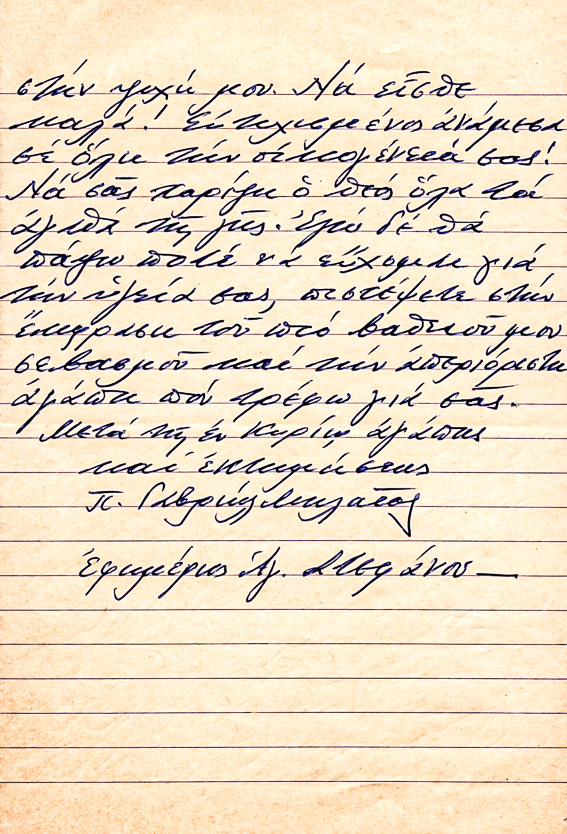 στήν ψυχή μου. Νά εἶσθε
καλά! Εὐτυχισμένος ἀνάμεσα
σέ ὅλη τήν οἰκογένειά σας!
Νά σᾶς χαρίζη ὁ Θεός ὅλα τά
ἀγαθά τῆς γῆς. Ἐγώ δέ θά
πάψω ποτέ νά εὔχομαι γιά
τήν ὑγεία σας, πιστέψετε στήν
ἔκφραση τοῦ πιό βαθειοῦ μου
σεβασμοῦ καί τήν ἀπεριόριστη
ἀγάπη πού τρέφω γιά σᾶς.
Μετά τῆς ἐν Κυρίῳ ἀγάπης
καί ἐκτιμήσεως
π. Γαβριήλ
Ἐφημέριος Ἁγ. Στεφάνου —